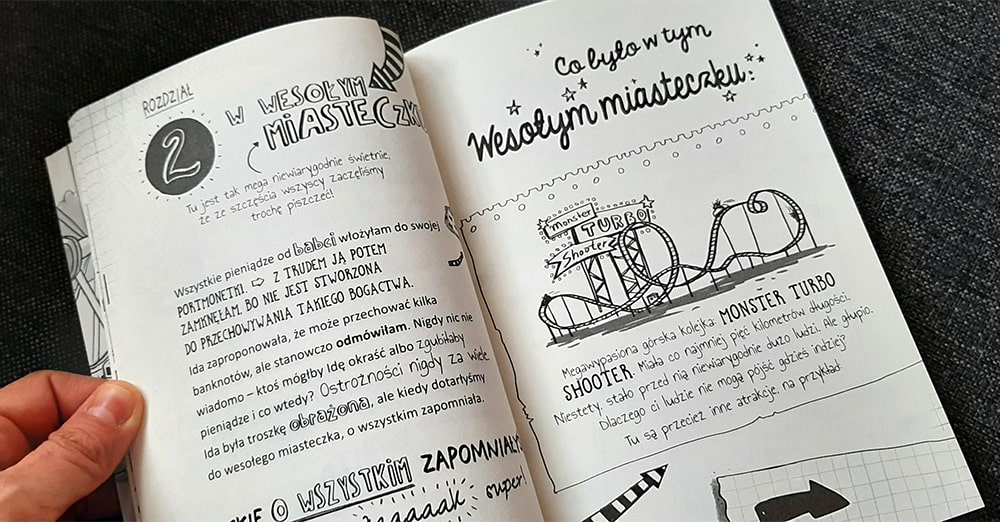 ROZDZIAŁ
2
W WESOŁYM
MIASTECZKU
Tu jest tak mega niewiarygodnie świetnie,
że ze szczęścia wszyscy zaczęliśmy
trochę piszczeć!
Wszystkie pieniądze od babci włożyłam do swojej
PORTMONETKI. ⇨ Z TRUDEM JĄ POTEM
ZAMKNĘŁAM, BO NIE JEST STWORZONA
DO PRZECHOWYWANIA TAKIEGO BOGACTWA.
Ida zaproponowała, że może przechować kilka
banknotów, ale stanowczo odmówiłam. Nigdy nic nie
wiadomo – ktoś mógłby Idę okraść albo zgubiłaby
pieniądze i co wtedy? Ostrożności nigdy za wiele.
Ida była troszkę obrażona, ale kiedy dotarłyśmy
do wesołego miasteczka, o wszystkim zapomniała.
O WSZYSTKIM ZAPOMNIAŁY
super!
Co było w tym
Wesołym miasteczku:
monster
TURBO
Shooter
Megawypasiona górska kolejka MONSTER TURBO
SHOOTER. Miała co najmniej pięć kilometrów długości.
Niestety, stało przed nią niewiarygodnie dużo ludzi. Ale głupio.
Dlaczego ci ludzie nie mogą pójść gdzieś indziej?
Tu są przecież inne atrakcje, na przykład: